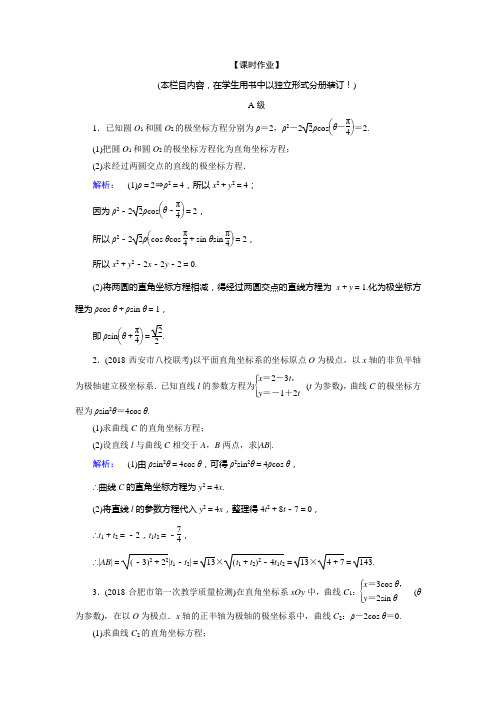 【课时作业】
(本栏目内容，在学生用书中以独立形式分册装订！)
A 级
1．已知圆 O₁和圆 O₂的极坐标方程分别为 ρ＝2，ρ²－2√2ρcos(θ－π/4)＝2.
(1)把圆 O₁和圆 O₂的极坐标方程化为直角坐标方程；
(2)求经过两圆交点的直线的极坐标方程．
解析： (1)ρ＝2⇒ρ²＝4，所以 x²＋y²＝4；
因为 ρ²－2√2ρcos(θ－π/4)＝2，
所以 ρ²－2√2ρ(cos θcos π/4＋sin θsin π/4)＝2，
所以 x²＋y²－2x－2y－2＝0.
(2)将两圆的直角坐标方程相减，得经过两圆交点的直线方程为 x＋y＝1.化为极坐标方
程为 ρcos θ＋ρsin θ＝1，
即 ρsin(θ＋π/4)＝√2/2.
2．(2018·西安市八校联考)以平面直角坐标系的坐标原点 O 为极点，以 x 轴的非负半轴
为极轴建立极坐标系．已知直线 l 的参数方程为{x＝2－3t， y＝－1＋2t (t 为参数)，曲线 C 的极坐标方
程为 ρsin²θ＝4cos θ.
(1)求曲线 C 的直角坐标方程；
(2)设直线 l 与曲线 C 相交于 A，B 两点，求|AB|.
解析： (1)由 ρsin²θ＝4cos θ，可得 ρ²sin²θ＝4ρcos θ，
∴曲线 C 的直角坐标方程为 y²＝4x.
(2)将直线 l 的参数方程代入 y²＝4x，整理得 4t²＋8t－7＝0，
∴t₁＋t₂＝－2，t₁t₂＝－7/4，
∴|AB|＝√((－3)²＋2²)|t₁－t₂|＝√13×√((t₁＋t₂)²－4t₁t₂)＝√13×√(4＋7)＝√143.
3．(2018·合肥市第一次教学质量检测)在直角坐标系 xOy 中，曲线 C₁：{x＝3cos θ， y＝2sin θ (θ
为参数)，在以 O 为极点．x 轴的正半轴为极轴的极坐标系中，曲线 C₂：ρ－2cos θ＝0.
(1)求曲线 C₂的直角坐标方程；